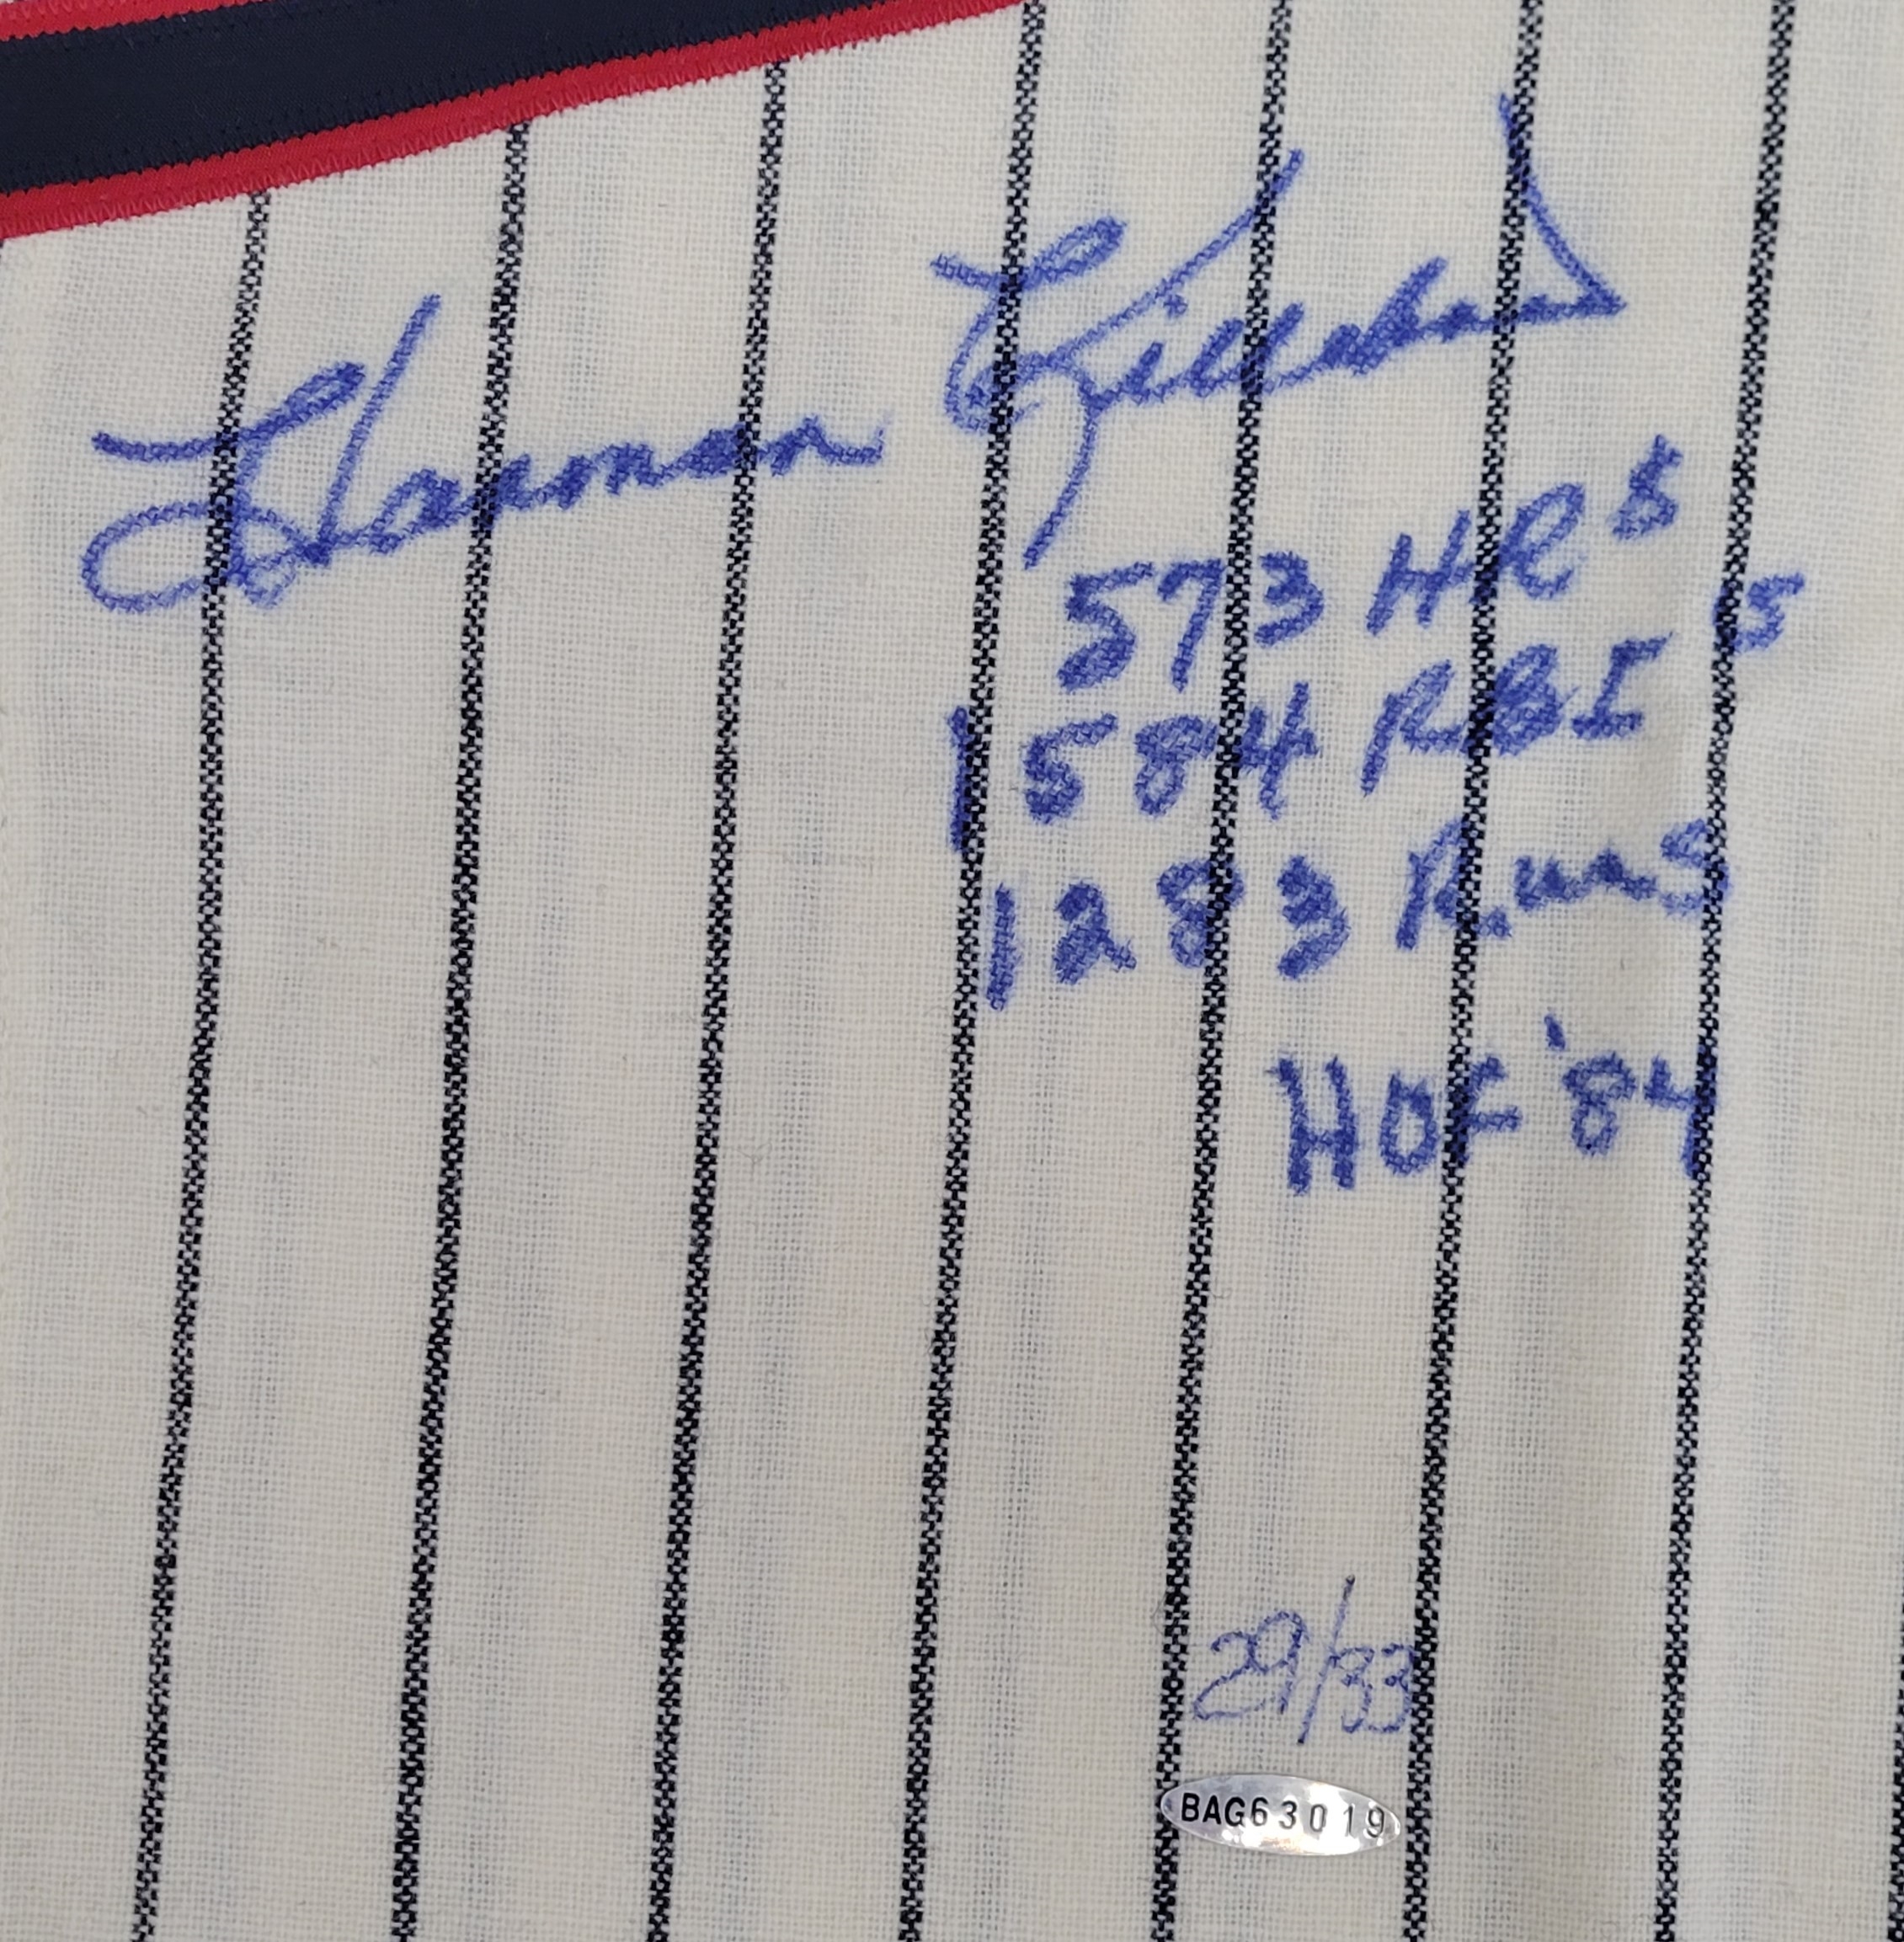 Harmon Killebrew
573 HR's
1584 RBI's
1283 Runs
HOF '84
29/33
BAG63019